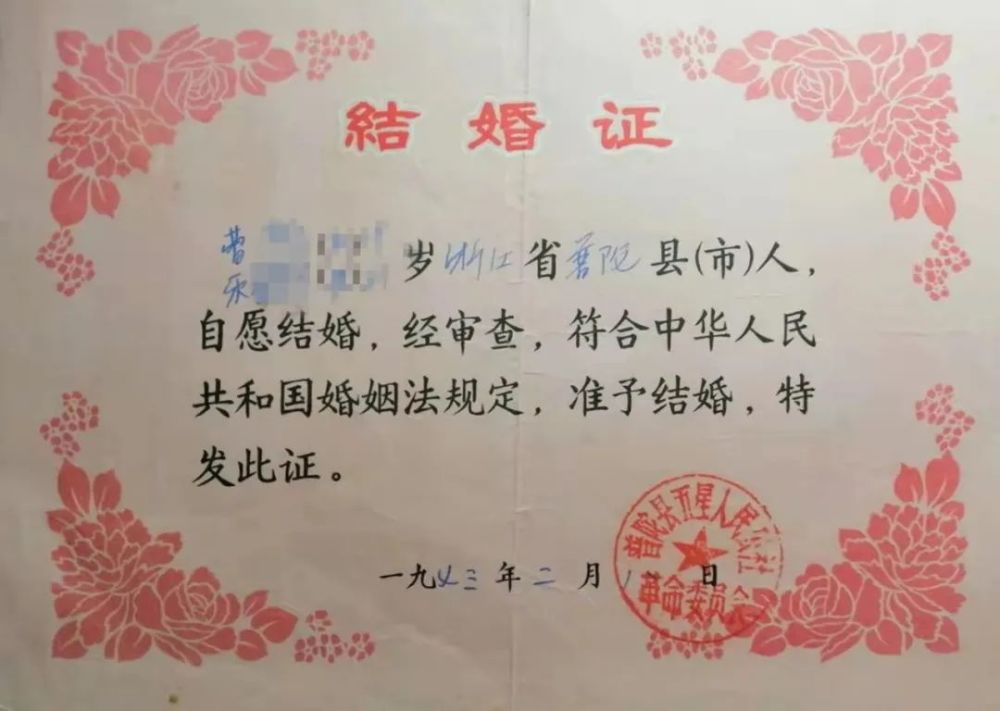 結婚证
曹
乐
岁浙江省普陀县(市)人，
自愿结婚，经审查，符合中华人民
共和国婚姻法规定，准予结婚，特
发此证。
一九七三年二月 日
普陀县五星人民公社
革命委员会